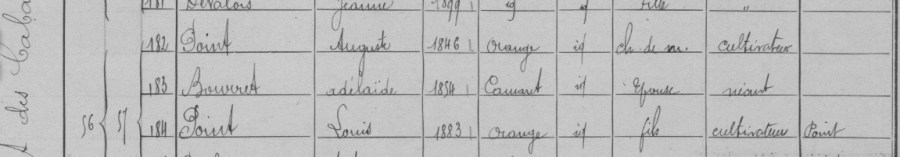 181 Devalois Jeanne 1899 id id fille "
182 Point Auguste 1846 Orange id ch. de m. cultivateur
183 Bourret adélaïde 1854 Camaret id Epouse néant
56 57 184 Point Louis 1883 Orange id fils cultivateur Point
des Caba